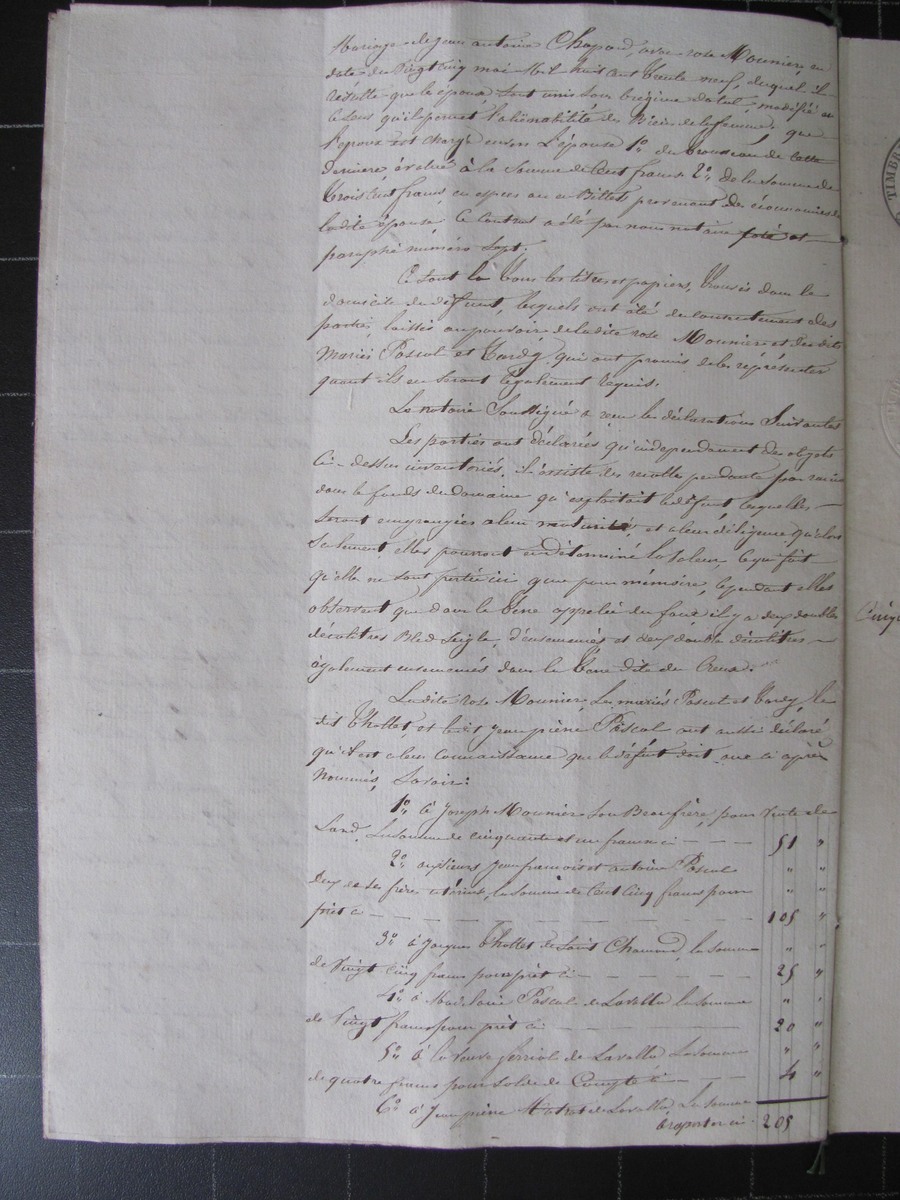 Mariage de jean antoine Chapard, avec rose Mounier, en
date du vingt cinq mai mil huit cent trente neuf, duquel il
résulte que les époux sont unis sous le régime dotal, modifié en
ce sens qu'il permet l'aliénabilité des Biens de la femme, que
l'époux est chargé envers l'épouse 1º du trousseau de cette
derniere, évalué à la somme de Cent francs 2º de la somme de
trois Cent francs en espèces ou en Billets provenant des économies de
ladite épouse. Ce Contrat a été par nous notaire coté et
paraphé numéro Sept.
Ce sont là tous les titres et papiers, trouvés dans le
domicile du défunt, lesquels ont été du consentement des
parties, laissés au pouvoir de ladite rose Mounier et desdits
Mariés Pascal et Tardy, qui ont promis de les représenter
quant ils en seront légalement requis.
Le notaire Soussigné a reçu les déclarations Suivantes
Les parties ont déclarés qu'independament des objets
Ci-dessus inventoriés, il éxiste des recolte pendante par racine
dans le fonds du domaine qu'exploitait le défunt, lesquelles
seront engrangées a leur maturité, et a leur diligence qu'alors
seulement elles pourront en déterminé la valeur ce qui fait
qu'elle ne sont portée ici que pour mémoire, cependant elles
observent que dans la terre appelée du faux il y a deux doubles
décalitres Bled Seigle, d'ensemencés et deux double décalitres
également ensemencés dans la terre dite du Creux.
Ladite rose Mounier, Les mariés Pascal et Tardy, le
dit Thollet et ledit jean pierre Pascal ont aussi déclaré
qu'il est a leur connaissance que le défunt doit aux ci après
Nommés, Savoir:
1º à Joseph Mounier Son Beaufrère, pour vente de
Lard, La somme de cinquante et un francs ci — — — 51 "
2º aux Sieurs Jean francois et antoine Pascal " "
deux de ses frères utérins, la somme de Cent Cinq francs pour " "
prêt ci — — — 105 "
3º à Jacques Thollet de Saint Chamond, la somme " "
de Vingt cinq francs pour prêt ci — — — 25 "
4º à Madelaine Pascal de Lavalla la somme " "
de vingt francs pour prêt ci — — — 20 "
5º à la veuve ferriol de Lavalla La somme " "
de quatre francs pour solde de Compte ci — — — 4 "
6º à Jean pierre Matrat de Lavalla, La somme
à reporter ci 205
TIMBRE